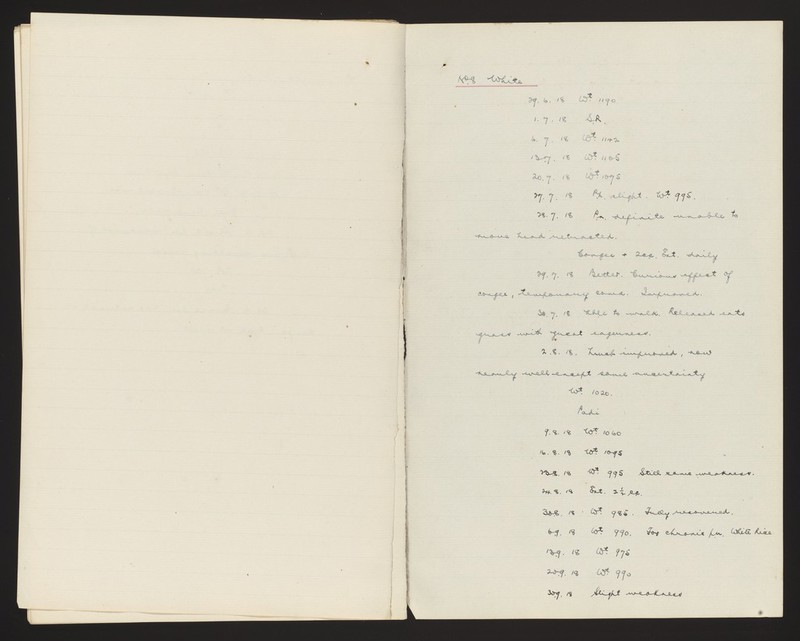 No 8 White
29. 6. 18 Wt 1190
1. 7. 18 S.R.
6. 7. 18 Wt. 1142
13. 7. 18 Wt 1105
20. 7. 18 Wt 1075
27. 7. 18 slight. Wt 995.
28. 7. 18 Pn. definite unable to
move head retracted.
Congee + Ext. daily
29. 7. 18 Better. Curious effect of
congee, temporary coma. Improved.
30. 7. 18 Able to walk. Released eats
grass with great eagerness.
2. 8. 18. Much improved, now
nearly well except some uncertainty
Wt 1020.
Padi
9. 8. 18 Wt 1060
16. 8. 18 Wt 1095
23. 8. 18 Wt 995 Still some weakness.
24. 8. 18 Ext. 2½
30. 8. 18 Wt 985. Fully recovered.
6. 9. 18 Wt 990. For chronic pn. White rice
13. 9. 18 Wt 975
20. 9. 18 Wt 990
30. 9. 18 Slight weakness